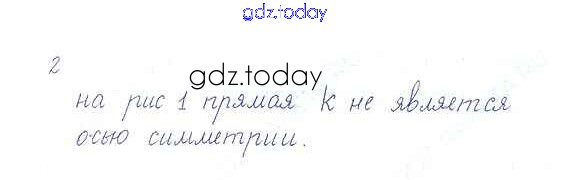 gdz.today
2
gdz.today
на рис 1 прямая k не является
осью симметрии.